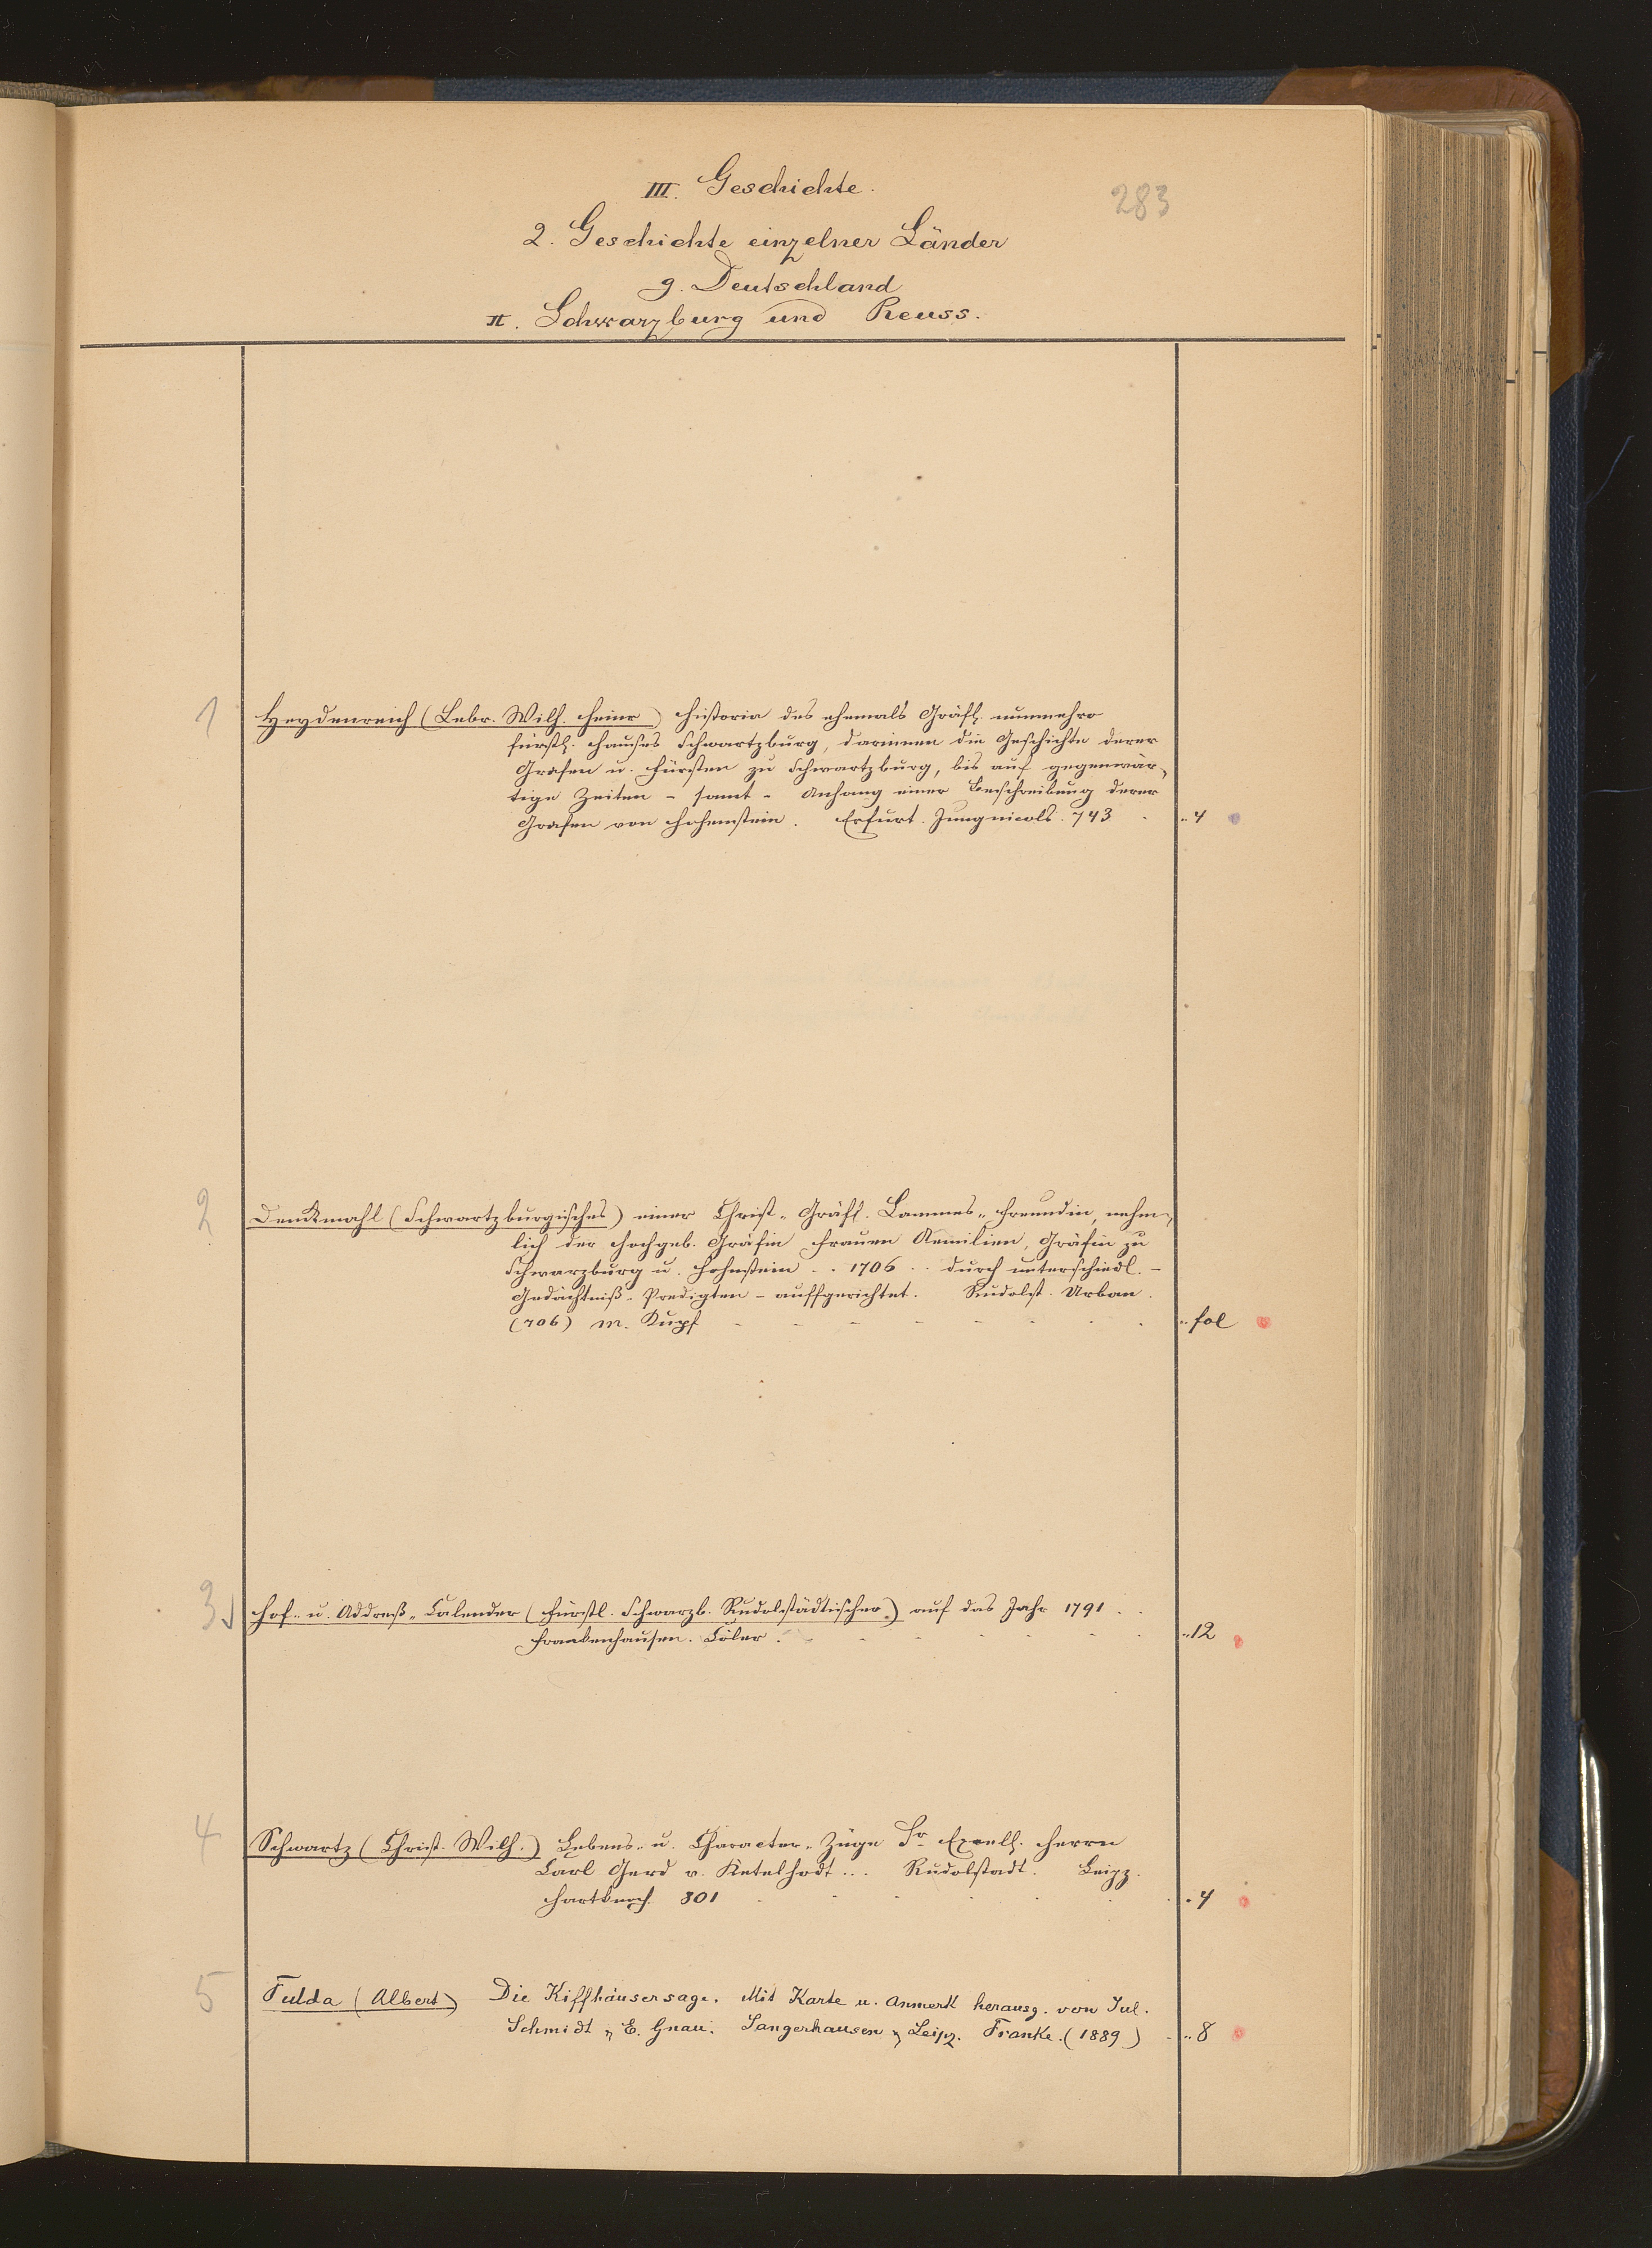 III. Geschichte.
283
2. Geschichte einzelner Länder
g. Deutschland
π. Schwarzburg und Reuss.
1 Heydenreich (Lebr. Wilh. Heinr) Historia des ehemals Gräfl. nunmehro
fürstl. Hauses Schwartzburg, darinnen die Geschichte derer
Grafen u. Fürsten zu Schwartzburg, bis auf gegenwär-
tige Zeiten - samt - Anhang einer Beschreibung derer
Grafen von Hohenstein. Erfurt. Jungnicols. 743 4
2 Denkmahl (Schwartzburgisches) einer Christ- Gräfl. Lammes- Freundin, nehm-
lich der Hochgeb. Gräfin Frauen Aemilien, Gräfin zu
Schwarzburg u. Hohnstein .. 1706 .. durch unterschiedl. -
Gedächtniß- Predigten - auffgerichtet. Rudolst. Urban.
(706) m. Kupf fol
3 Hof- u. Addreß- Calender (Fürstl. Schwarzb. Rudolstädtischer) auf das Jahr 1791 ..
Frankenhausen. Cöler. 12
4 Schwartz (Christ. Wilh.) Lebens- u. Character- Züge Sr. Excell. Herrn
Carl Gerd v. Ketelhodt ... Rudolstadt. Leipz.
Hartknoch. 801 4
5 Fulda (Albert) Die Kiffhäusersage. Mit Karte u. Anmerk herausg. von Jul.
Schmidt u E. Gnau. Sangerhausen u Leipz. Franke. (1889) 8